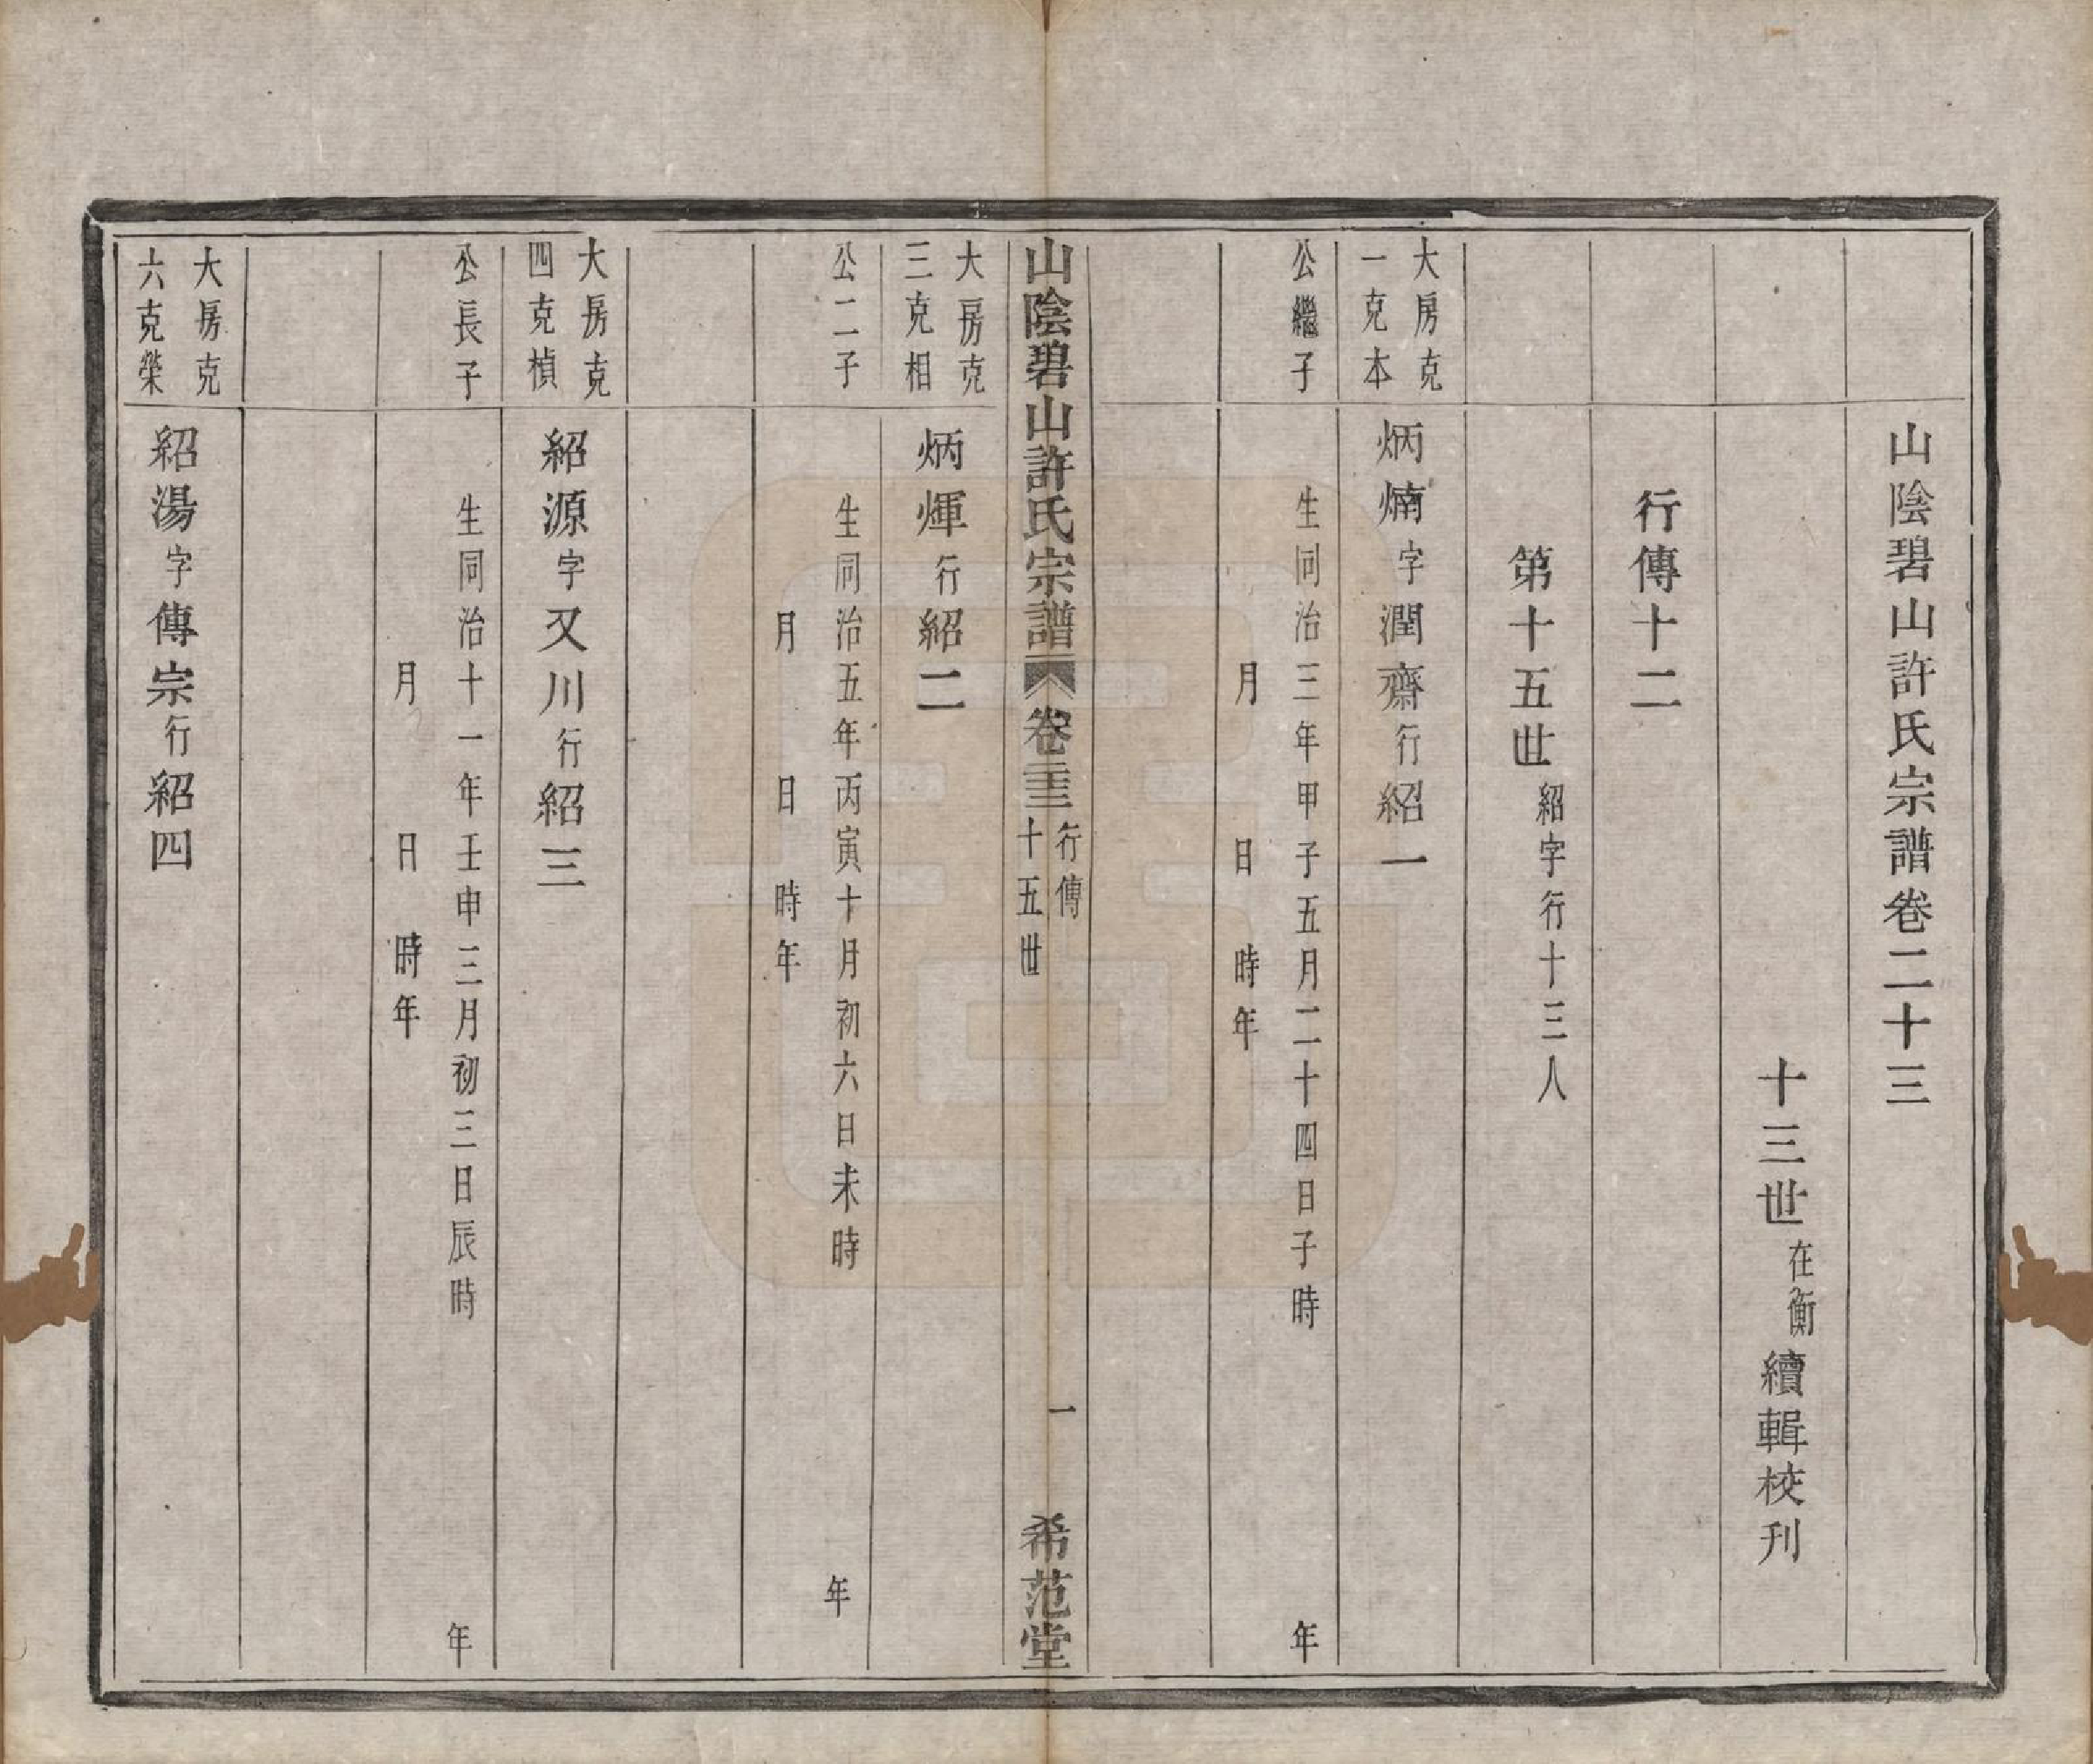 山陰碧山許氏宗譜卷二十三
十三世在衡續輯校刊
行傳十二
第十五世紹字行十三人
大房克
一克本
炳煵字潤齋行紹一
公繼子
生同治三年甲子五月二十四日子時 年
月 日 時年
山陰碧山許氏宗譜 卷二十三 行傳
十五世
一 希范堂
大房克
三克相
炳煇行紹二
公二子
生同治五年丙寅十月初六日未時 年
月 日 時年
大房克
四克楨
紹源字又川行紹三
公長子
生同治十一年壬申三月初三日辰時 年
月 日 時年
大房克
六克榮
紹湯字傳宗行紹四